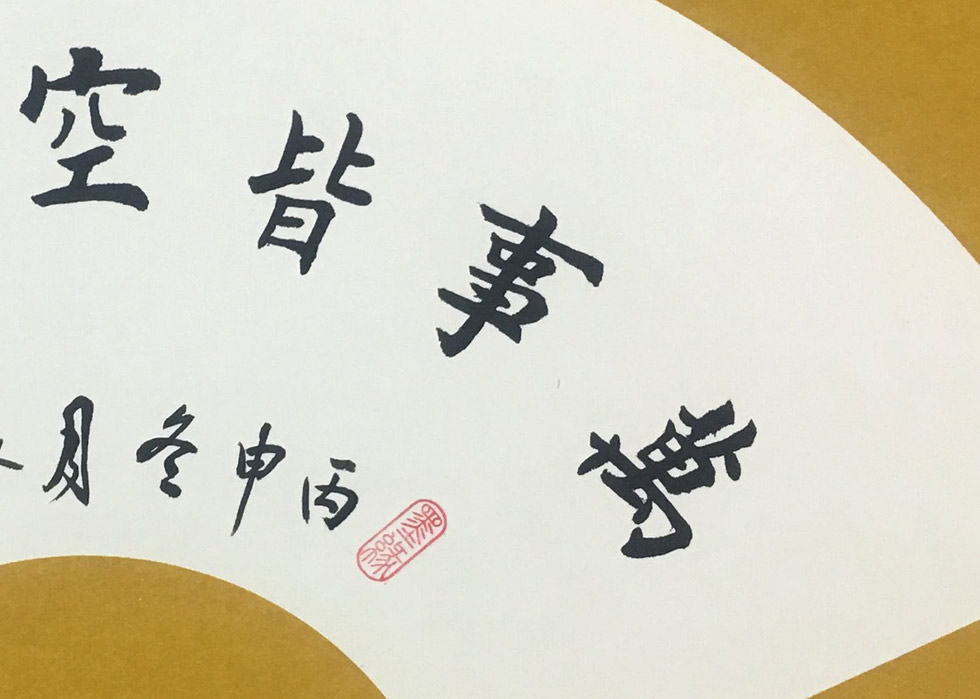 萬事皆空
丙申冬月